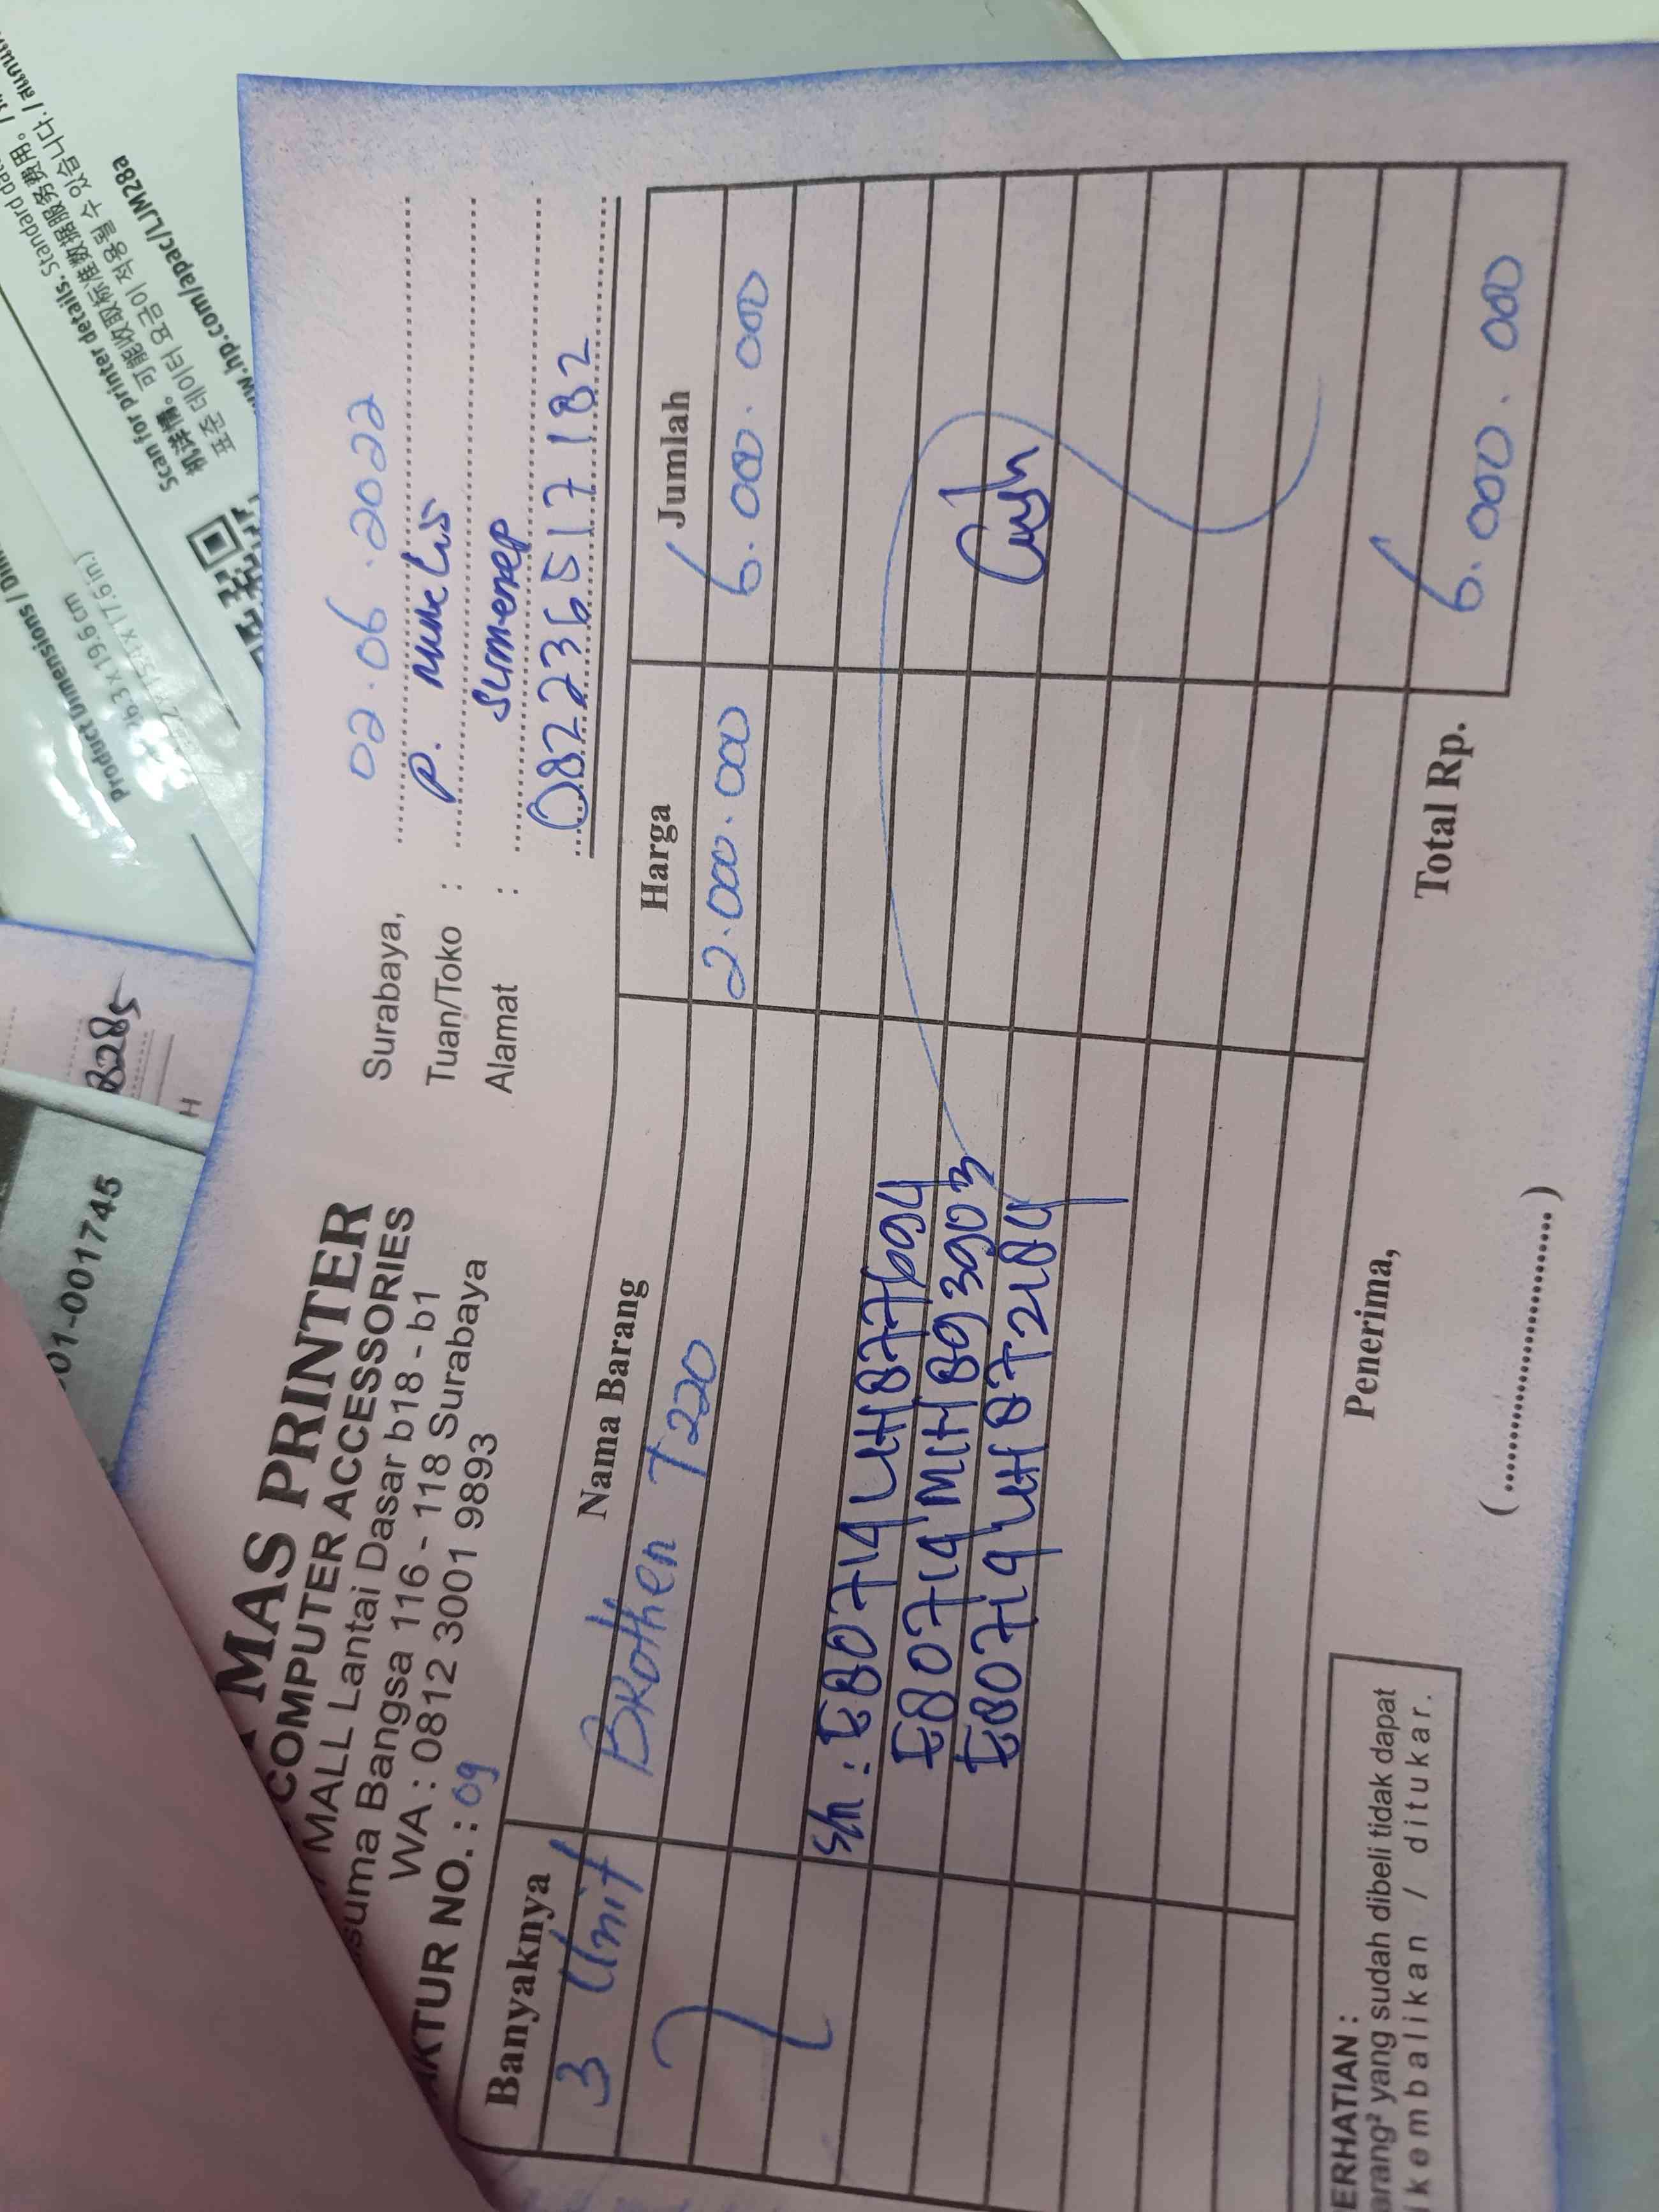 MAS PRINTER
COMPUTER ACCESSORIES
MALL Lantai Dasar b18 - b1
suma Bangsa 116 - 118 Surabaya
WA : 0812 3001 9893
AKTUR NO. : 09
Surabaya, 02.06.2022
Tuan/Toko : P.
Alamat : Sumenep
082236517182
Banyaknya Nama Barang Harga Jumlah
3 Unit Brother T220 2.000.000 6.000.000
S/N :
Cash
Total Rp. 6.000.000
Penerima,
(..............................)
ERHATIAN :
arang² yang sudah dibeli tidak dapat
ikembalikan / ditukar.
01-001745
B285
H
Product Dimensions
Scan for printer details. Standard
机详情。可能收取标准数据服务费用。
표준 데이터 요금이 적용될 수 있습니다.
ww.hp.com/apac/LJM28a